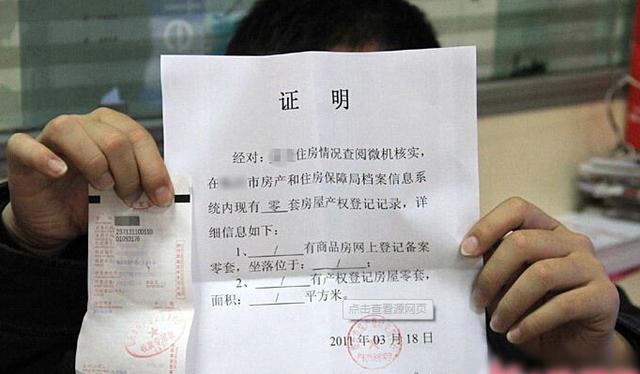 证 明
经对：住房情况查阅微机核实，
在市房产和住房保障局档案信息系
统内现有 零 套房屋产权登记记录，详
细信息如下：
1、 / 有商品房网上登记备案
零套，坐落位于： / ；
2、 / 有产权登记房屋零套，
面积： / 平方米。
点击查看源网页
2011 年 03 月 18 日
237131100110
01093176